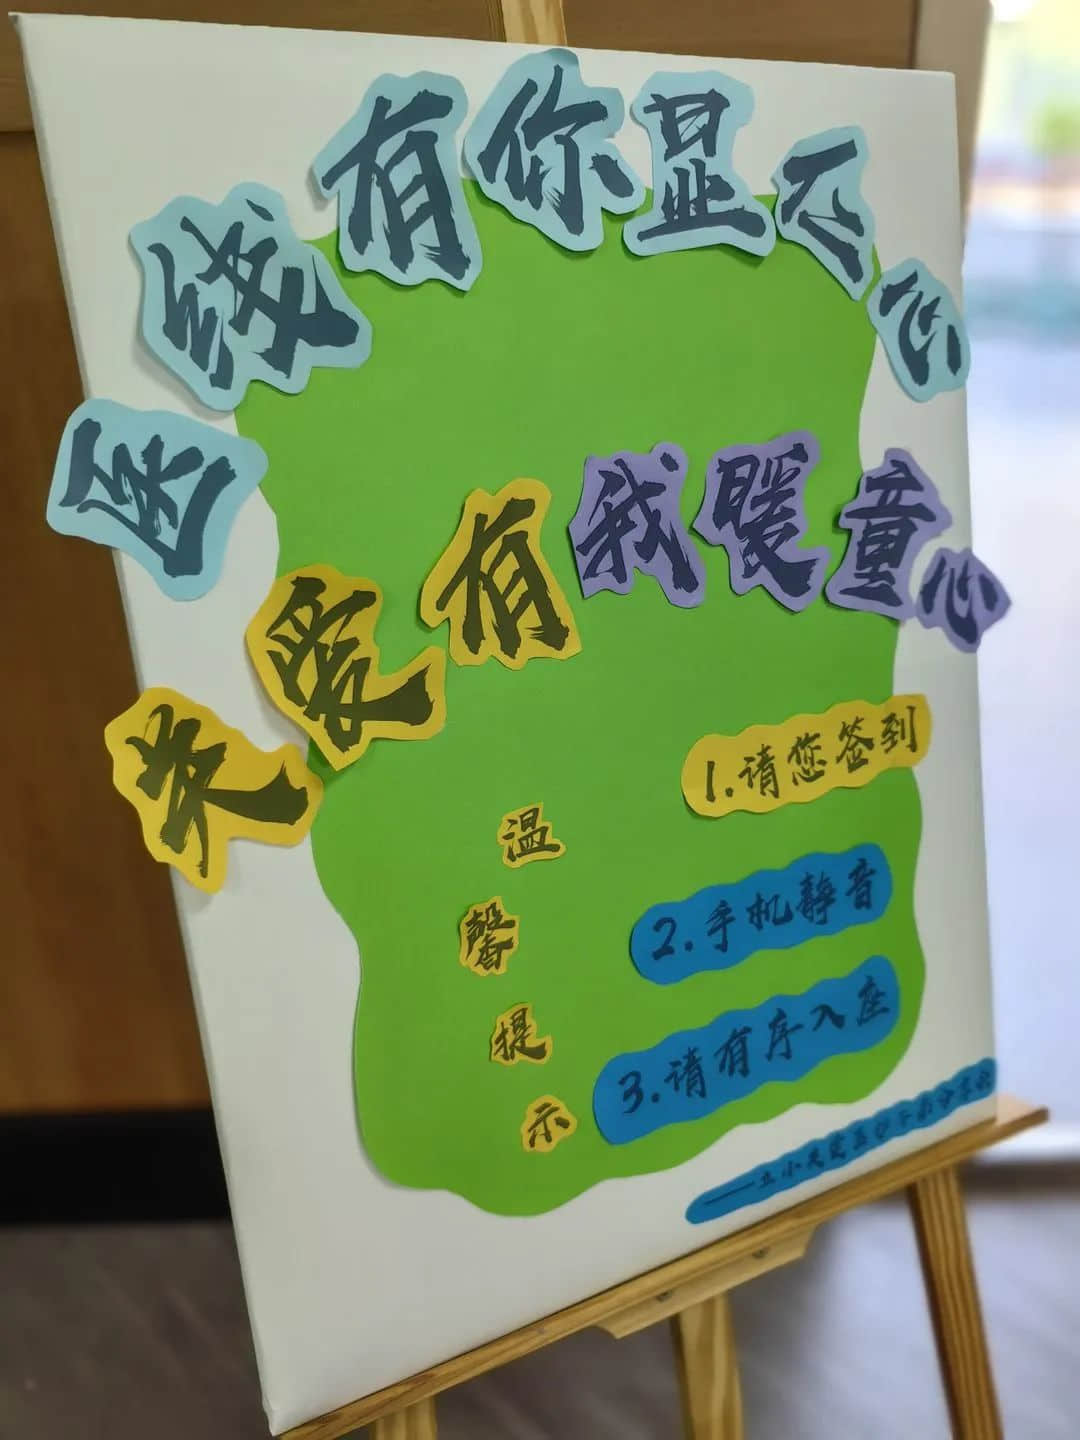 医线有你显仁心
关爱有我暖童心
温馨提示
1.请您签到
2.手机静音
3.请有序入座
分享会